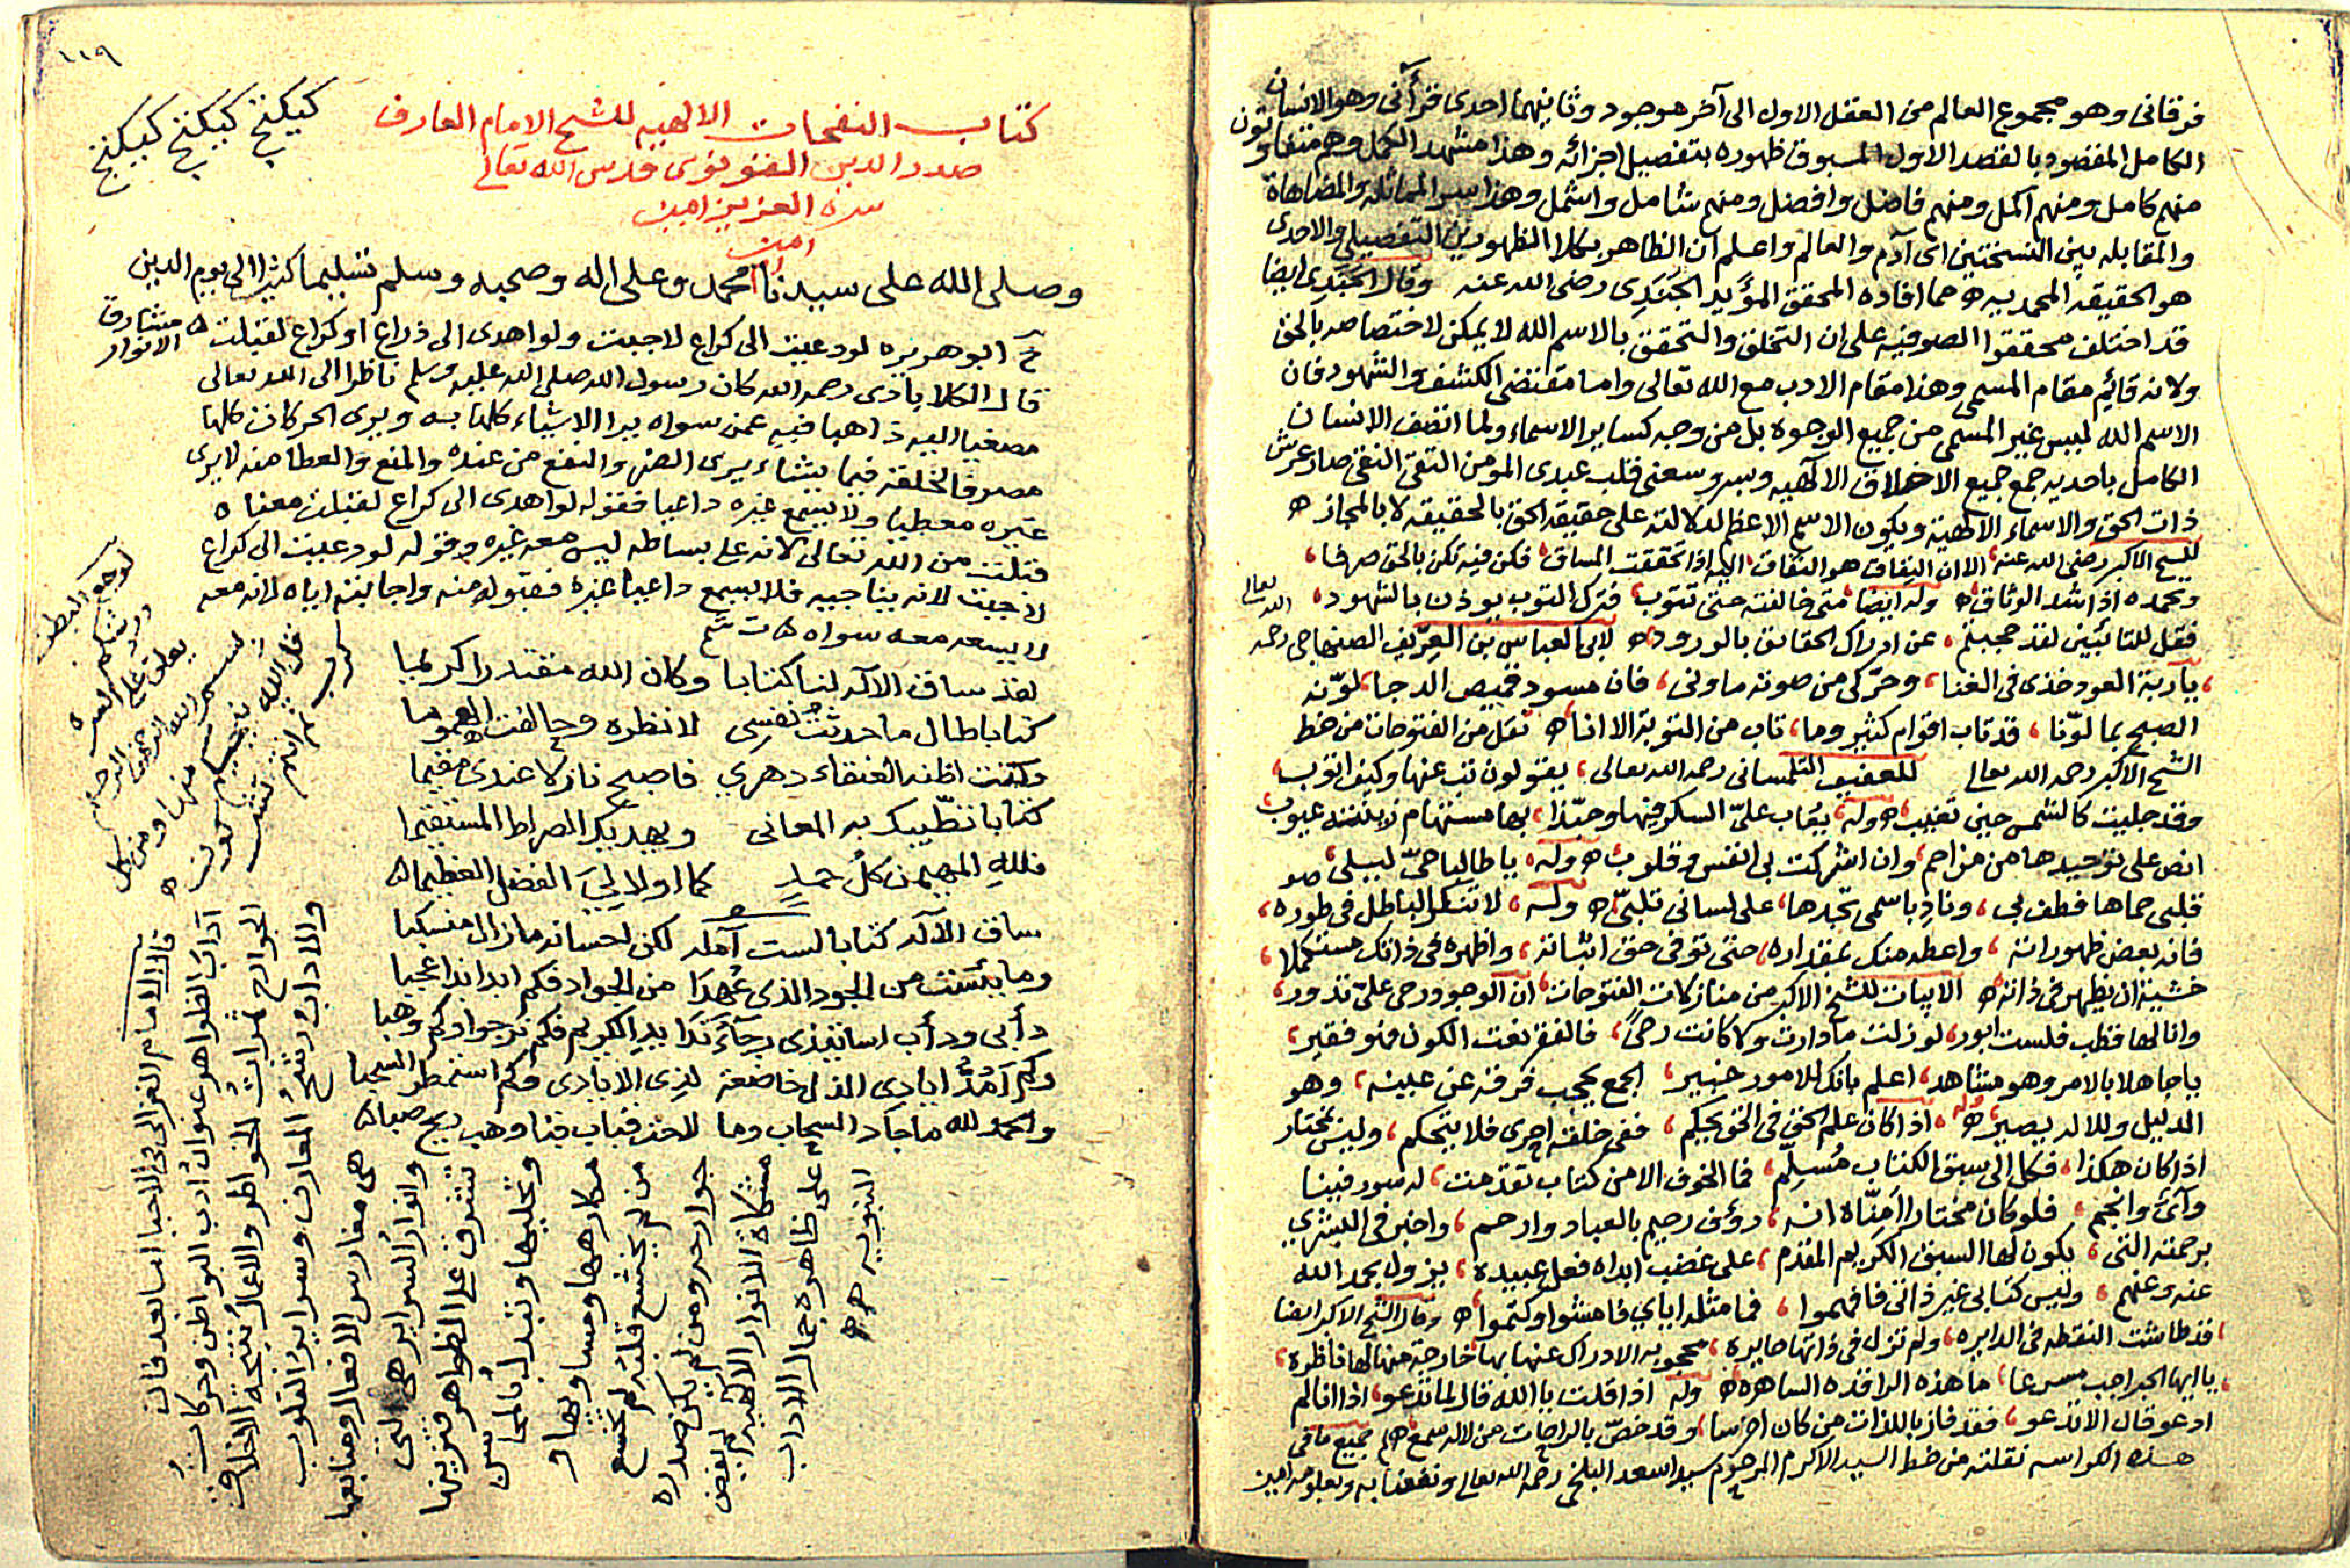 فرقانى وهو مجموع العالم من العقل الاول الى آخر موجود وثانيهما احدى قرآنى وهو الانسان
الكامل المقصود بالقصد الاول المسبوق ظهوره بتفصيل اجزائه وهذا مشهد الكمل وهم متفاوتون
منهم كامل ومنهم اكمل ومنهم فاضل وافضل ومنهم شامل واشمل وهذا سر المماثلة والمضاهاة
والمقابله بين النسختين اى آدم والعالم واعلم ان الظاهر بكلا الظهورين التفصيلى والاحدى
هو الحقيقه المحمديه ه مما افاده المحقق المؤيد الجندى رضى الله عنه وقال الجندى ايضا
قد اختلف محققوا الصوفيه على ان التخلق والتحقق بالاسم الله لا يمكن لاختصاصه بالحق
ولانه قايم مقام المسمى وهذا مقام الادب مع الله تعالى واما مقتضى الكشف والشهود فان
الاسم الله ليس غير المسمى من جميع الوجوه بل من وجه كساير الاسماء ولما اتصف الانسان
الكامل باحديه جمع جميع الاخلاق الالهيه وسر وسعنى قلب عبدى المومن التقى النقى صار عرش
ذات الحق والاسماء الالهية ويكون الاسم الاعظم لدلالته على حقيقه الحق بالحقيقه لا بالمجاز ه
للشيخ الاكبر رضى الله عنه الا ان النفاق هو النفاق اذا تحققت المساق فكن فيه تكن بالحق صرفا
وتحمده اذا شد الوثاق ه وله ايضا متى خالفته حتى تتوب فترك التوب يوذن بالشهود
فقل للتائبين لقد حجبتم عن ادراك الحقايق بالورود ه لابى العباس بن العريف الصنهاجى رحمه الله تعالى
ياربة العود خذى فى الغنا وحركى من صوته ماونى فان مسود قميص الدجا لونه
الصبح بما لونا قد تاب اقوام كثير وما تاب من التوبة الا انا ه نقل من الفتوحات من خط
الشيخ الاكبر رحمه الله تعالى للعفيف التلمسانى رحمه الله تعالى يقولون تب عنها وكيف اتوب
وقد جليت كالشمس حين تغيب ه وله يعاب على السكر فيها وحبذا بها مستهام لا عيوب
انص على توحيدها من مزاحم وان اشركت بى انفس وقلوب ه وله يا طالبا حى ليلى صو
قلبى حماها فطف بى وناد باسمى تجدها على لسانى تلبى ه وله لا تنكر الباطل فى طوره
فانه بعض ظهوراته واعطه منك بمقداره حتى توفى حق اثباته واظهره فى ذاتك مستكملا
خشية ان يظهر فى ذاته ه الابيات للشيخ الاكبر من منازلات الفتوحات ان الوجود رحى على تدور
وانا لها قطب فلست ابور لو زلت ما دارت ولا كانت رحى فالفقر نعت الكون فهو فقير
يا جاهلا بالامر وهو مشاهد اعلم بانك للامور خبير الجمع يحجب فرقه عن عينه وهو
الدليل وللاله بصير ه وله اذا كان علم الحق فى الحق يحكم ففى خلقه احرى فلا يتحكم وليس بمختار
اذا كان هكذا فكل الى سبق الكتاب مسلم فما الخوف الا من كتاب تقدمت له سور فينا
وآى وانجم فلو كان مختارا امناه انه رؤف رحيم بالعباد وارحم واخبر فى البشرى
برحمته التى يكون لها السبق الكريم المقدم على غضب ابداه فعل عبيده يزول بحمد الله
عنه وعنهم وليس كتابى غير ذاتى فافهموا فما مثله اياى فامشوا وكتموا ه وقال الشيخ الاكبر ايضا
قد طاشت النقطه فى الدايره ولم تزل فى ذاتها حايره محجوبه الادراك عنها بها خارجة منها لها ناظره
يا ايها الراحب مسرعا ما هذه الراقده الساهره ه وله اذا قلت يا الله قال لما تدعو اذا انا لم
ادعو قال الا تدعو فقد فاز باللذات من كان اخرسا وقد خص بالراحات من لا له سمع ه جميع ما فى
هذه الكراسه نقلته من خط السيد الاكرم المرحوم سيد اسعد البلخى رحمه الله تعالى ونفعنا به وبعلومه امين
١١٩
كيكنج كيكنج كيكنج
كتاب النفحات الالهيه للشيخ الامام العارف
صدر الدين القونوى قدس الله تعالى
سره العزيز امين
امين
وصلى الله على سيدنا محمد وعلى اله وصحبه وسلم تسليما كثيرا الى يوم الدين
خ ابو هريره لو دعيت الى كراع لاجبت ولو اهدى الى ذراع او كراع لقبلت ه مشارق الانوار
قال الكلاباذى رحمه الله كان رسول الله صلى الله عليه وسلم ناظرا الى الله تعالى
مصغيا اليه ذاهبا فيه عمن سواه يرا الاشياء كلها به ويرى الحركات كلها
مصرفا لخلقه فيما يشاء يرى الضر والنفع من عنده والمنع والعطا منه لا يرى
غيره معطيا ولا يسمع غيره داعيا فقوله لو اهدى الى كراع لقبلت معناه
قبلت من الله تعالى لانه على بساطه ليس معه غيره وقوله لو دعيت الى كراع
لاجبت لانه يناجيه فلا يسمع داعيا غيره فقبوله منه واجابته اياه لانه معه
لا يسعه معه سواه ه
لقد ساق الاله لنا كتابا وكان الله مقتدرا كريما
كتابا طال ما حدثت نفسى لانظره وحالفت الهموما
وكنت اظنه العنقاء دهرى فاصبح نازلا عندى مقيما
كتابا تطبيك به المعانى ويهديك الصراط المستقيما
فلله المهيمن كل حمد كما اولا لى الفضل العظيما ه
ساق الاله كتابا لست آمله لكن لحسانه مازال منسكبا
وما يئست من الجود الذى عهدا من الجواد فكم ابدا ندا عجبا
دأبى ودأب اساتيذى رجاء ندا يد الكريم فكم نرجو وكم وهبا
وكم امد ايادى الذل خاضعة لذى الايادى وكم استمطر السحبا
والحمد لله ما جاد السحاب وما لاحد قباب قبا وهب ريح صبا ه
لوجع البطن
يعلق على السره
بسم الله الرحمن الرحيم
قل الله ينجيكم منها ومن كل
كرب ثم انتم تشركون ه
قال الامام الغزالى فى الاحيا اما بعد فان
آداب الظواهر عنوان ادب البواطن وحركات
الجوارح ثمرات الخواطر والاعمال نتيجة الاخلاق
والاداب رشح المعارف وسراير القلوب
هى مغارس الافعال ومنابعها
وانوار السراير هى التى
تشرق على الظواهر فتزينها
وتحليها وتبدل بالمحاسن
مكارهها ومساويها و
من لم يخشع قلبه لم تخشع
جوارحه ومن لم يكن صدره
مشكاة الانوار الالهيه لم يفض
على ظاهره جمال الاداب
النبويه ه ه